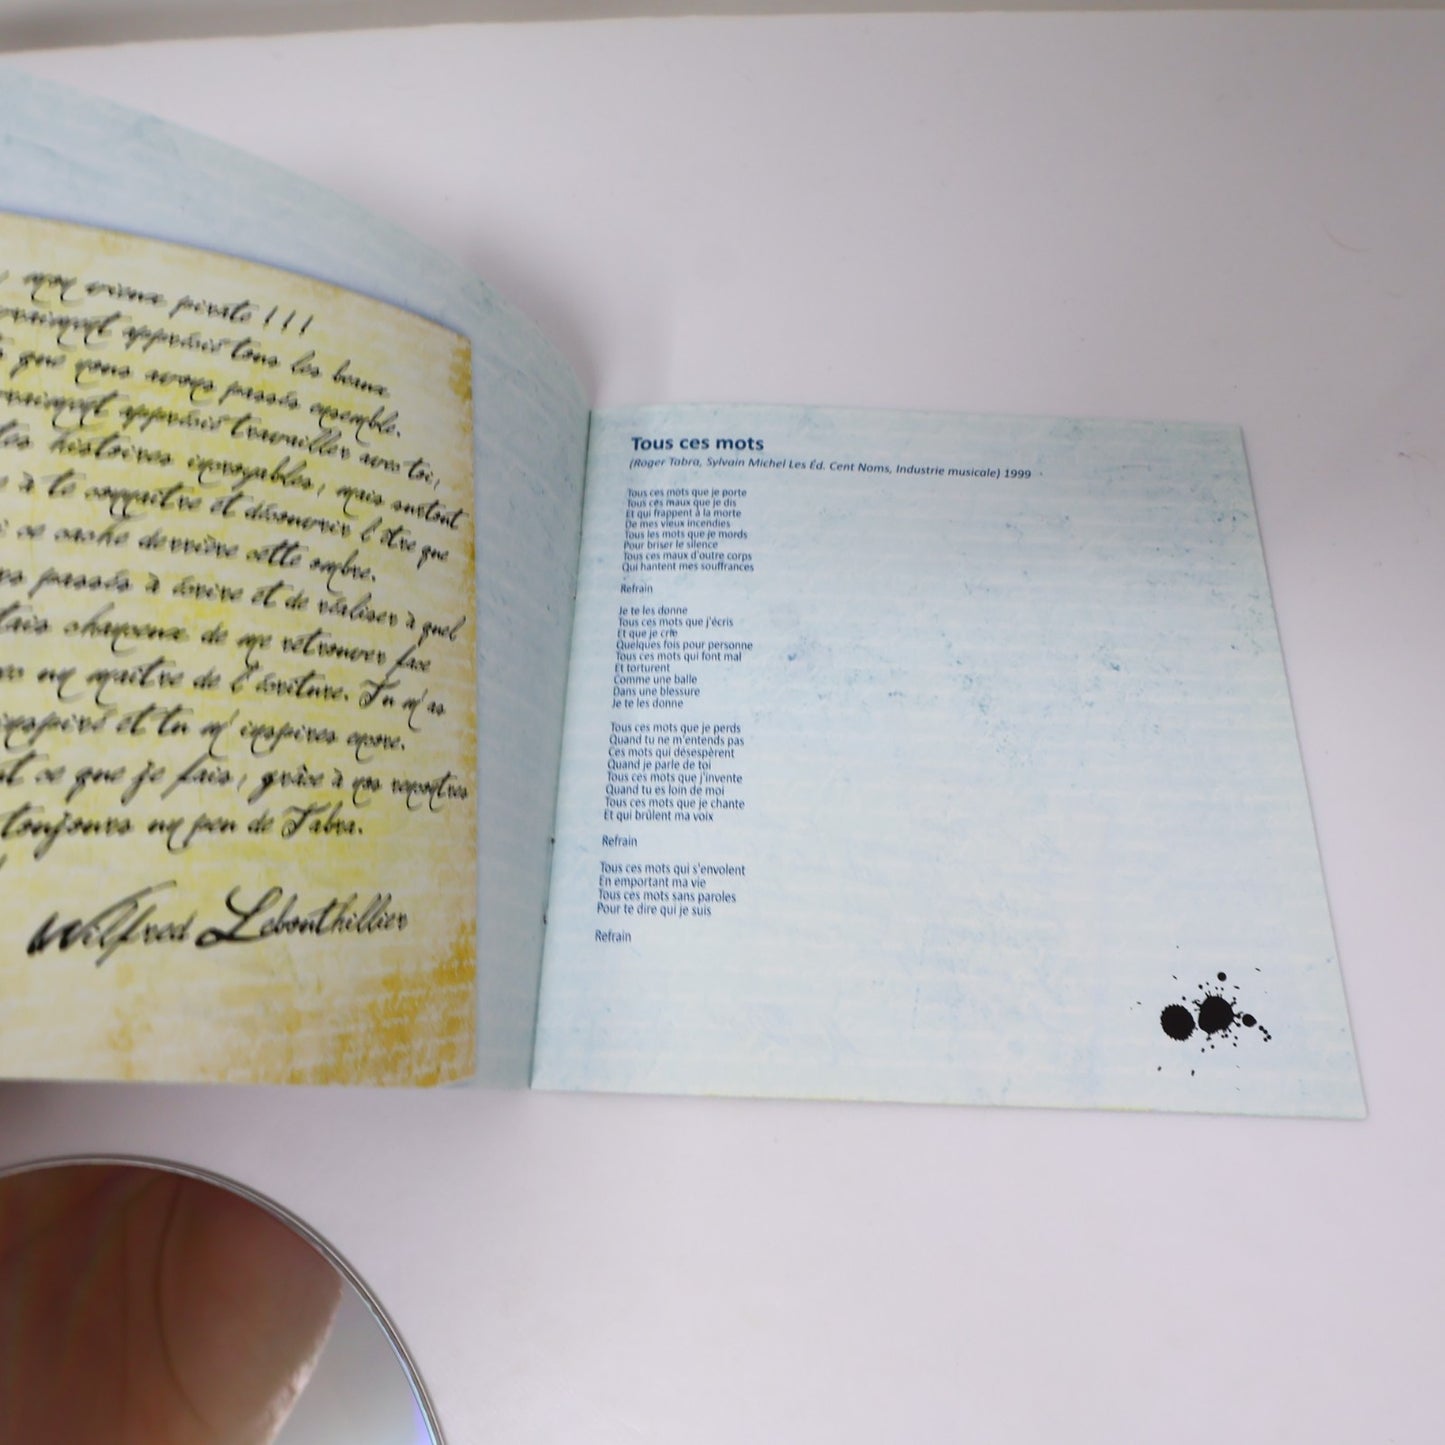 mon vieux pirate ! ! !
vraiment apprécié tous les beaux
que nous avons passés ensemble.
vraiment apprécié travailler avec toi,
tes histoires incroyables, mais surtout
à te connaître et découvrir l'être que
se cache derrière cette ombre.
passés à écrire et de réaliser à quel
chanceux de me retrouver face
un maître de l'écriture. Tu m'as
inspiré et tu m'inspires encore.
ce que je fais, grâce à nos rencontres
toujours un peu de Tabra.
Wilfred Lebouthillier
Tous ces mots
(Roger Tabra, Sylvain Michel Les Éd. Cent Noms, Industrie musicale) 1999
Tous ces mots que je porte
Tous ces maux que je dis
Et qui frappent à la morte
De mes vieux incendies
Tous les mots que je mords
Pour briser le silence
Tous ces maux d'outre corps
Qui hantent mes souffrances
Refrain
Je te les donne
Tous ces mots que j'écris
Et que je crie
Quelques fois pour personne
Tous ces mots qui font mal
Et torturent
Comme une balle
Dans une blessure
Je te les donne
Tous ces mots que je perds
Quand tu ne m'entends pas
Ces mots qui désespèrent
Quand je parle de toi
Tous ces mots que j'invente
Quand tu es loin de moi
Tous ces mots que je chante
Et qui brûlent ma voix
Refrain
Tous ces mots qui s'envolent
En emportant ma vie
Tous ces mots sans paroles
Pour te dire qui je suis
Refrain